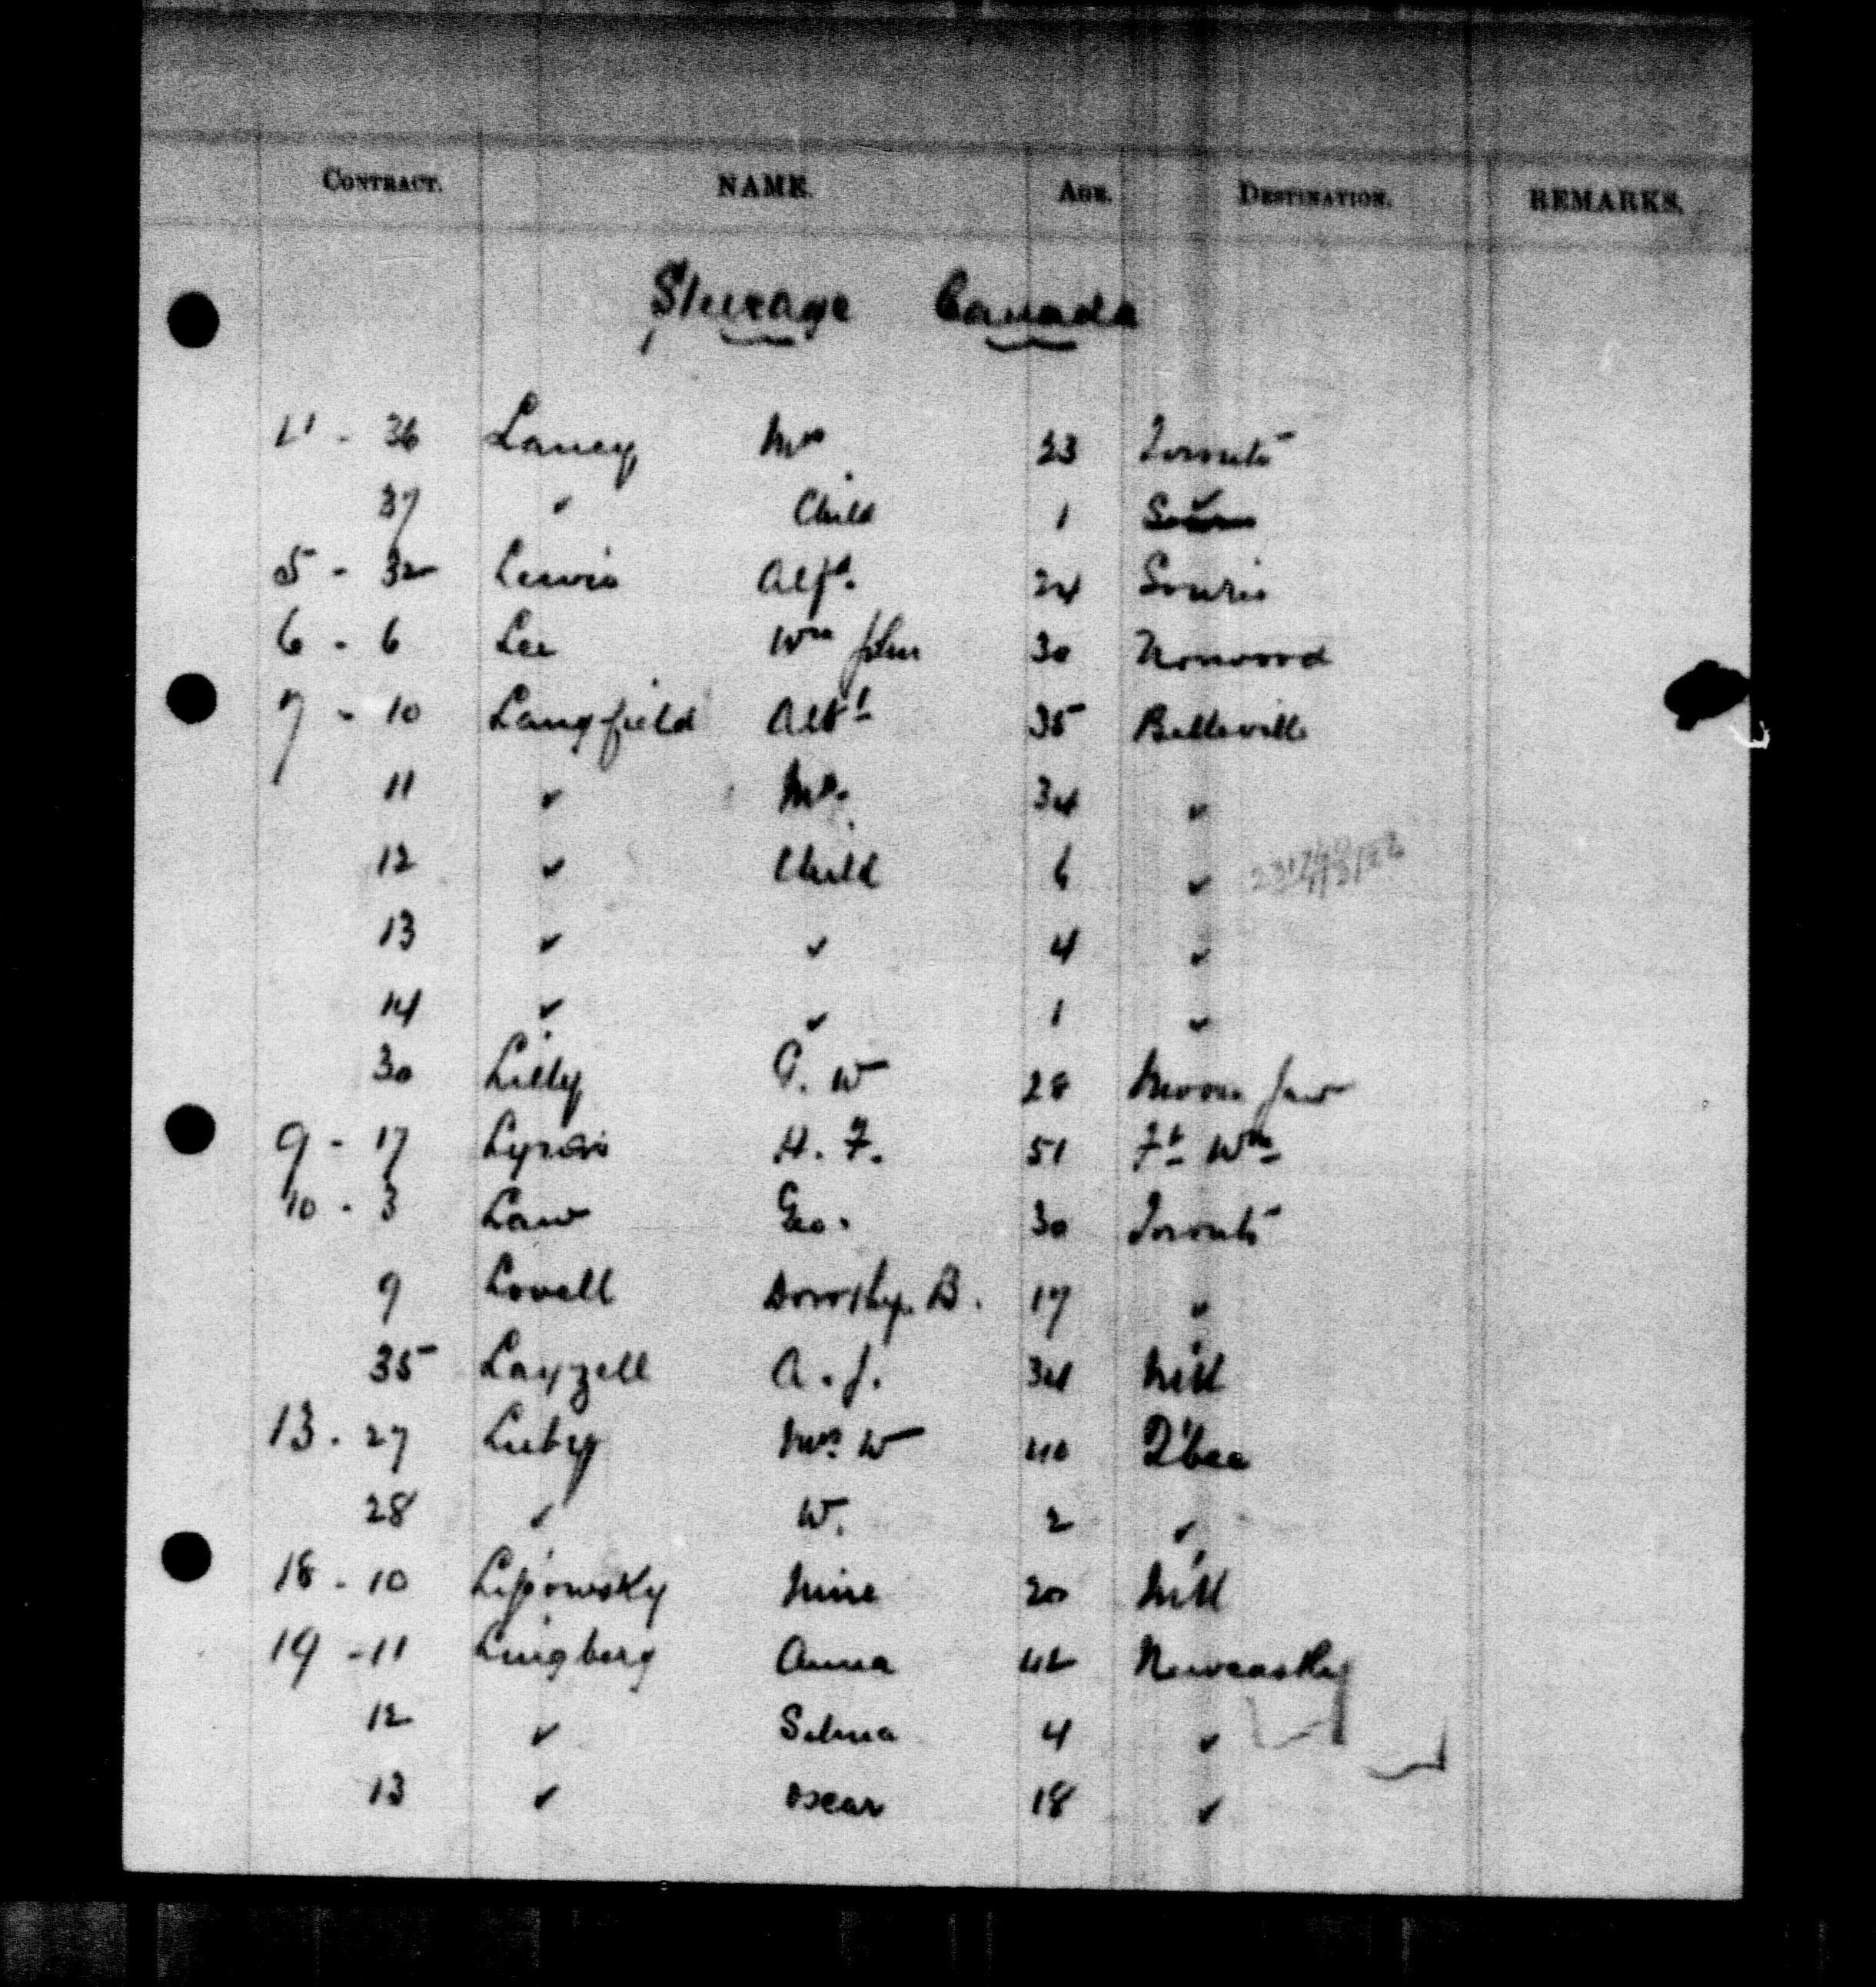 CONTRACT. NAME. AGE. DESTINATION. REMARKS.
Steerage Canada
36 Laney Mrs 23 Toronto
37 " Child 1 "
5 - 32 Lewis Alfd. 24 Souris
6 - 6 Lee Wm John 30 Norwood
7 - 10 Langfield Albt 35 Belleville
11 " Mrs. 34 "
12 " Child 6 "
13 " " 4 "
14 " " 1 "
30 Lilly G. W 28 Moose Jaw
9 - 17 Lyons H. F. 51 Ft Wm
10 - 3 Law Geo. 30 Toronto
9 Lovell Dorothy B. 17 "
35 Layzell A. J. 34 Mtl
13 - 27 Luby Mrs W 40 Q'bec
28 " W. 2 "
18 - 10 Lipowsky Mine 20 Mtl
19 - 11 Lingberg Anna 42
12 " Selma 4 "
13 " Oscar 18 "